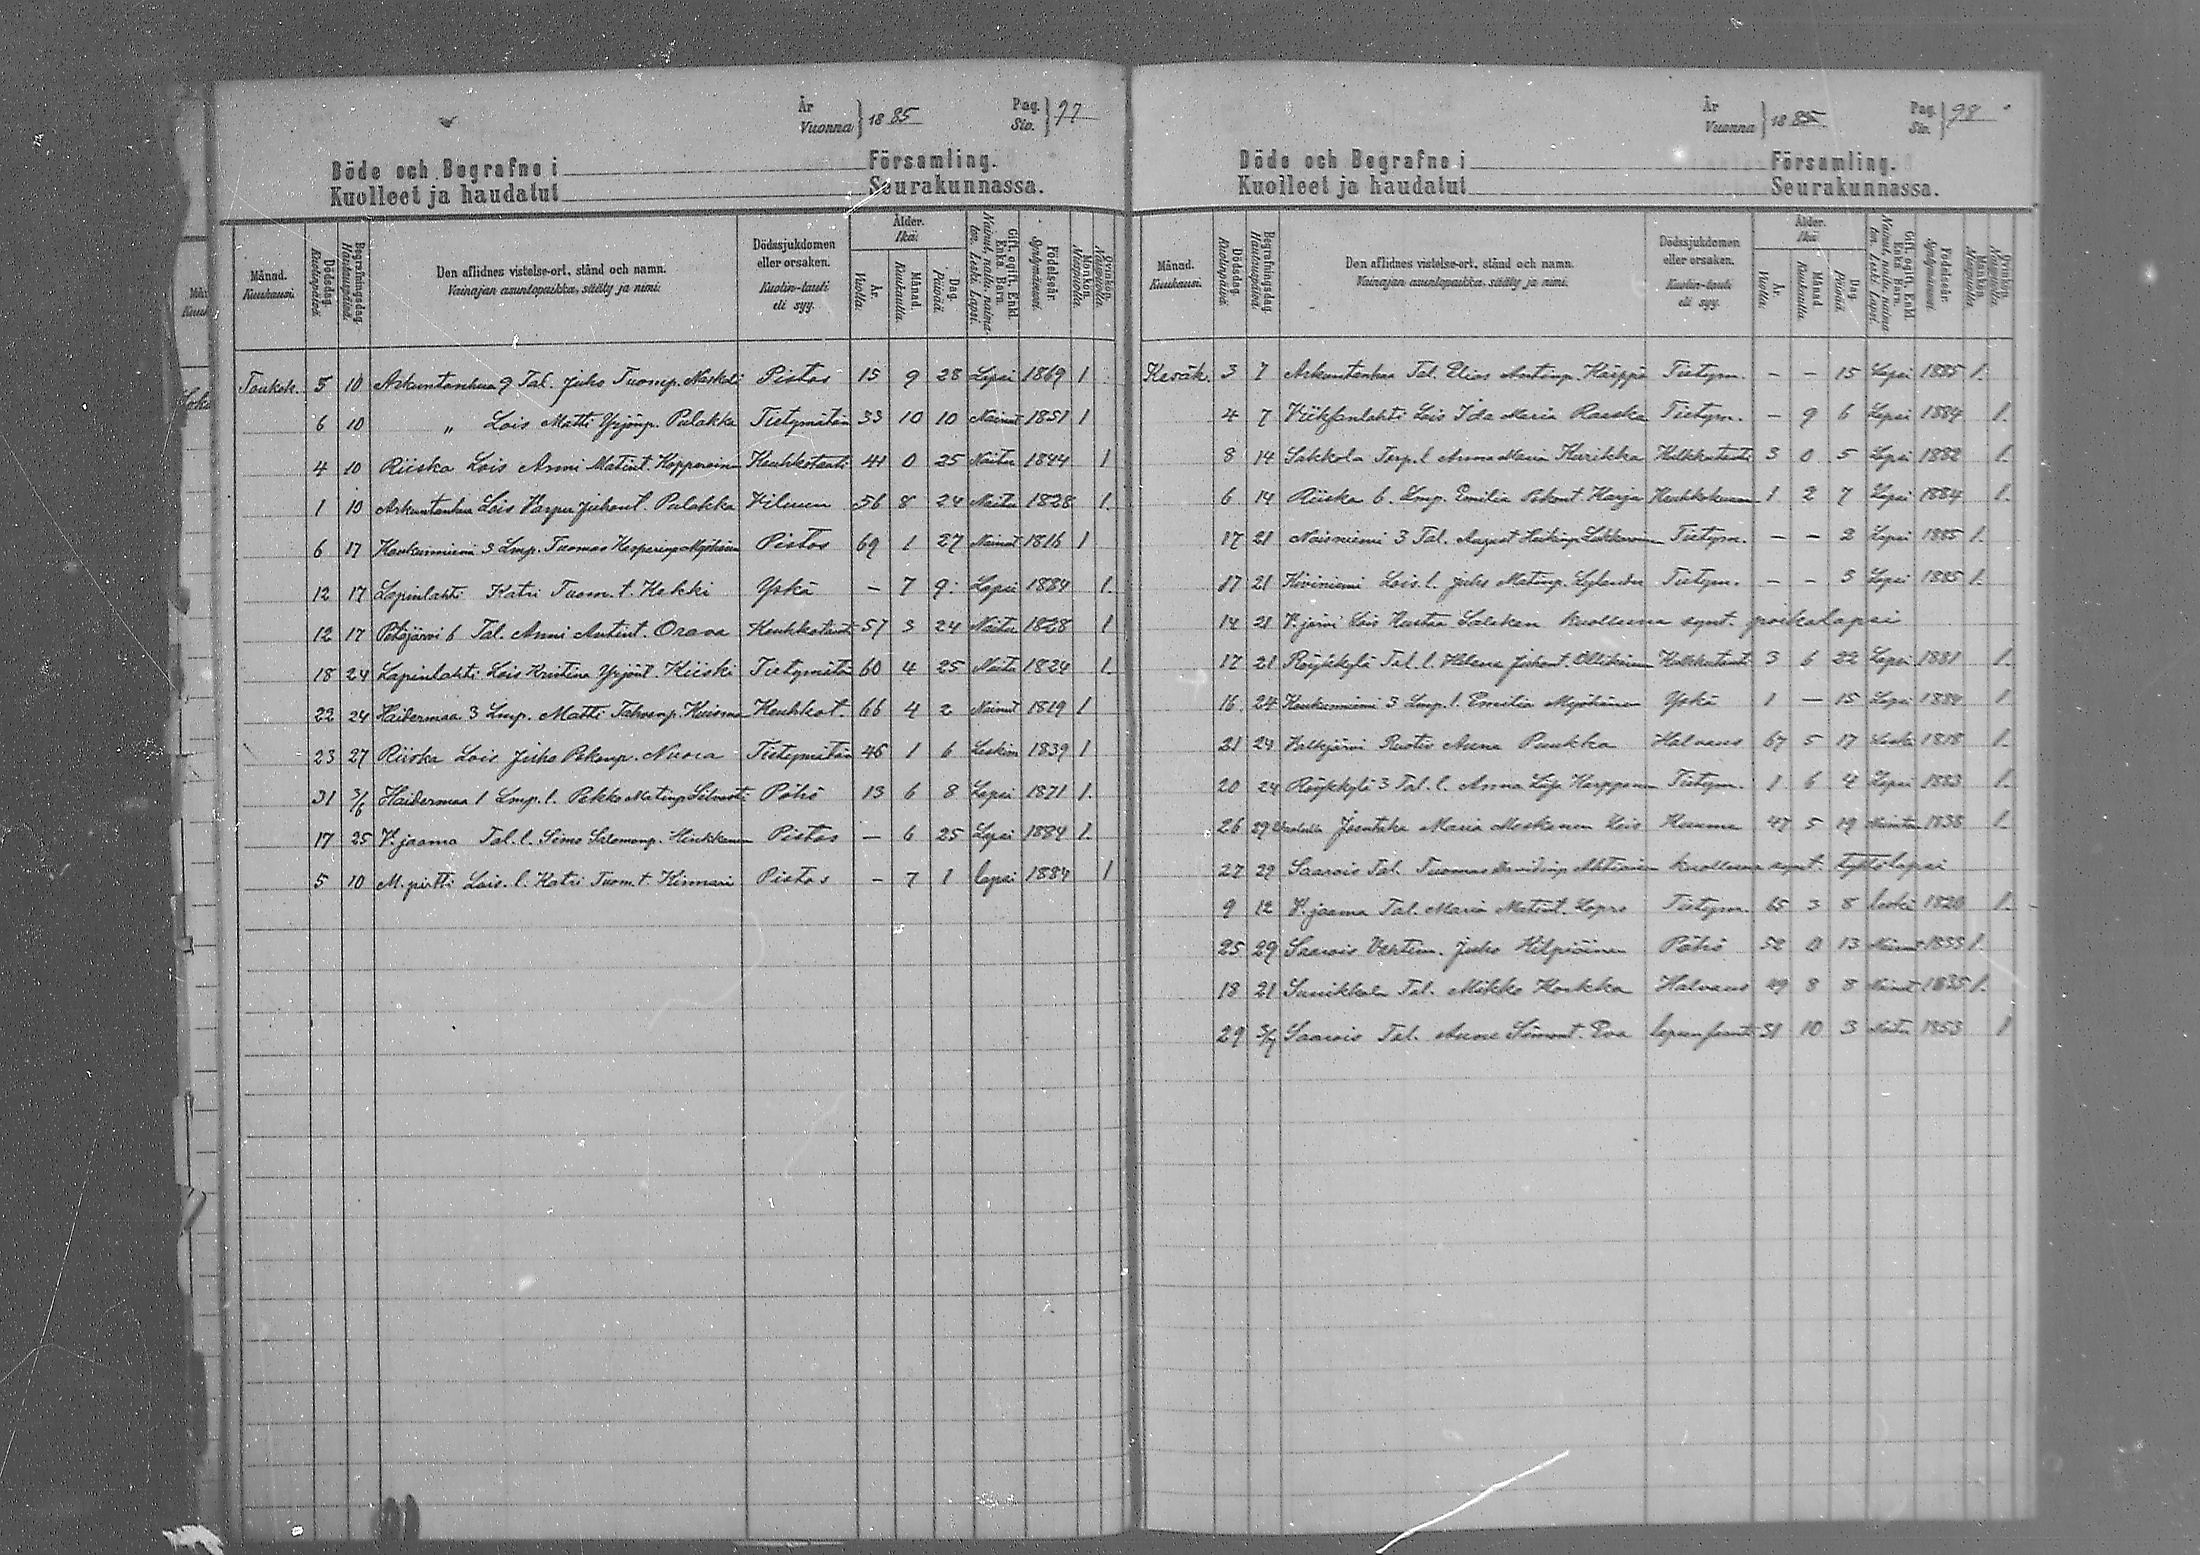 År
Vuonna } 18 85
Pag.
Siv. } 97
Döde och Begrafne i Församling.
Kuolleet ja haudatut Seurakunnassa.
Månad. Kuukausi.
Dödsdag. Kuolinpäivä.
Begrafningsdag. Hautauspäivä.
Den aflidnes vistelse-ort, stånd och namn.
Vainajan asuntopaikka, sääty ja nimi.
Dödssjukdomen eller orsaken.
Kuolin-tauti eli syy.
Ålder. Ikä.
År. Vuotta.
Månad. Kuukautta.
Dag. Päivää.
Gift, ogift, Enkl. Enka. Barn.
Nainut, naitu, naimaton, Leski, Lapsi.
Födelseår. Syntymävuosi.
Mankön. Miespuolta.
Qvinkön. Naispuolta.
Toukok. 5 10 Arkuntanhua 9 Tal. Juho Tuomp. Naskali Pistos 15 9 28 Lapsi 1869 1
6 10 „ Lois Matti Yrjönp. Pulakka Tietymätön 33 10 10 Nainut 1851 1
4 10 Riiska Lois Anni Matint. Kopperoinen Keuhkotauti 41 0 25 Naitu 1844 1
1 10 Arkuntanhua Lois Varpu Juhont. Pulakka Vilunen 56 8 24 Naitu 1828 1.
6 17 Haukunniemi 3 Lmp. Tuomas Kasperinp Myöhänen Pistos 69 1 27 Nainut 1816 1
12 17 Lapinlahti Katri Tuom. t. Hekki Yskä – 7 9 Lapsi 1884 1.
12 17 Petäjärvi 6 Tal. Anni Antint. Orava Keuhkotauti 57 3 24 Naitu 1828 1
18 24 Lapinlahti Lois Kristina Yrjönt. Kiiski Tietymätön 60 4 25 Naitu 1824 1.
22 24 Haidermaa 3 Lmp. Matti Tahvonp. Kuisma Keuhkot. 66 4 2 Nainut 1819 1
23 27 Riiska Lois Juho Pekanp. Nuora Tietymätön 46 1 6 Leskim 1839 1
31 3/6 Haidermaa 1 Lmp. l. Pekka Matinp Pöhö 13 6 8 Lapsi 1871 1.
17 25 V. jaama Tal. l. Simo Salomonp. Hinkkanen Pistos – 6 25 Lapsi 1884 1.
5 10 M. pirtti Lois. l. Katri Tuom. t. Kinnari Pistos – 7 1 lapsi 1884 1
År
Vuonna } 18 85
Pag.
Siv. } 98
Döde och Begrafne i Församling.
Kuolleet ja haudatut Seurakunnassa.
Månad. Kuukausi.
Dödsdag. Kuolinpäivä.
Begrafningsdag. Hautauspäivä.
Den aflidnes vistelse-ort, stånd och namn.
Vainajan asuntopaikka, sääty ja nimi.
Dödssjukdomen eller orsaken.
Kuolin-tauti eli syy.
Ålder. Ikä.
År. Vuotta.
Månad. Kuukautta.
Dag. Päivää.
Gift, ogift, Enkl. Enka. Barn.
Nainut, naitu, naimaton, Leski, Lapsi.
Födelseår. Syntymävuosi.
Mankön. Miespuolta.
Qvinkön. Naispuolta.
Kesäk. 3 7 Arkuntanhua Tal. Elias Antinp. Käppi Tietym. – – 15 Lapsi 1885 1.
4 7 Lois Ida Maria Raeska Tietym. – 9 6 Lapsi 1884 1.
8 14 Sakkola Torp. l Anna Maria Kurikka Kulkutauti 3 0 5 Lapsi 1882 1.
6 14 Riiska 6. Lmp. Emilia Pekant. Karja 1 2 7 Lapsi 1884 1.
17 21 Noisniemi 3 Tal. August Heikinp. Tietym. – – 2 Lapsi 1885 1.
17 21 Kiviniemi Lois. l. Juho Matinp. Tietym. – – 3 Lapsi 1885 1.
14 21 V. järvi Lois Kustaa kuolleena synt. poikalapsi
17 21 Röykkylä Tal. l. Helena Juhont. Ollikainen Kulkutauti 3 6 22 Lapsi 1881 1.
16 24 Haukunniemi 3 Lmp. l. Emilia Myöhänen Yskä 1 – 15 Lapsi 1884 1
21 24 Anna Puukka Halvaus 67 5 17 Leski 1818 1.
20 24 Röykkylä 3 Tal. l. Anna Karppanen Tietym. 1 6 4 Lapsi 1883 1.
26 29 Maria Meskanen Lois Kuume 47 5 19 1838 1.
27 29 Saarois Tal. Tuomas Davidinp kuolleena synt. tyttölapsi
9 12 V. jaama Tal. Maria Matint. Tietym. 65 3 8 leski 1820 1.
25 29 Saarois Juho Hilpiäinen Pöhö 52 0 13 Nainut 1833 1.
18 21 Sunikkala Tal. Mikko Koukka Halvaus 49 8 8 Nainut 1835 1.
29 3/7 Saarois Tal. Anna Simont. Eva 31 10 3 Naitu 1853 1